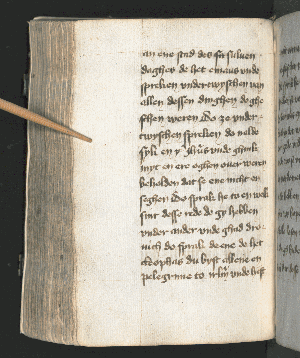 an ene stad des suluen
daghes de het emaus vnde
spreken vndertwysschen van
allen dessen dinghen de ghe
schen weren Do ze vnder
twysschen spreken de
syk en vnde ghink
myt en ere oghen ouer weren
beholden dat se ene nicht en
seghen Do sprak he to en welk
sint desse rede de gy hebben
vnder ander vnde ghad dro
nich do sprak de ene de het
Cleophas du byst allene en
pelegrime to vnde hest